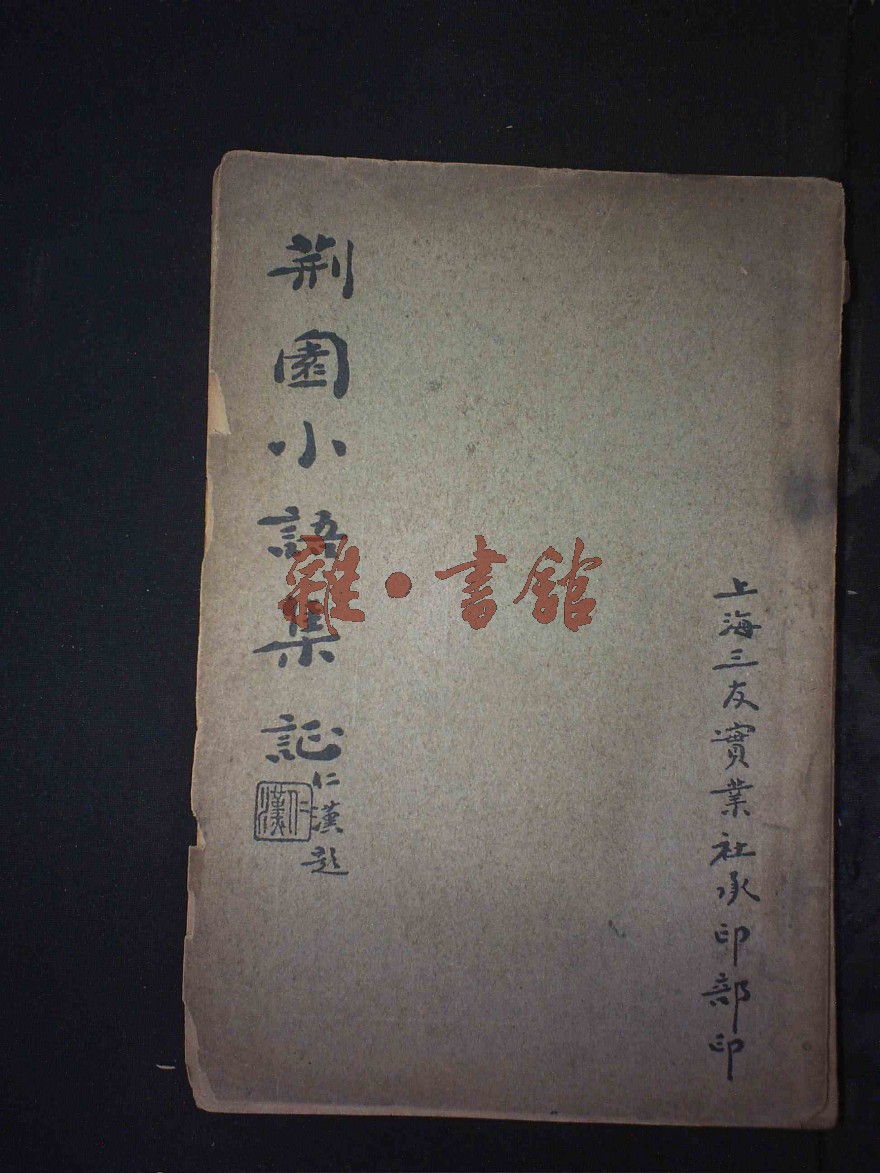 上海三友實業社承印部印
荆園小語集証
仁漢題
仁漢
雜·書館